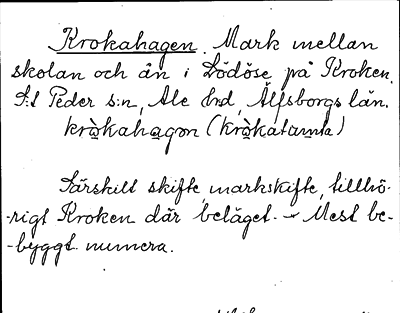 Krokahagen. Mark mellan
skolan och ån i Lödöse på Kroken.
S:t Peder s:n, Ale hd, Älfsborgs län.
krò̱kahagən (krò̱katamta)
Särskilt skifte, markskifte, tillhö-
-rigt Kroken där beläget. - Mest be-
-byggt numera.